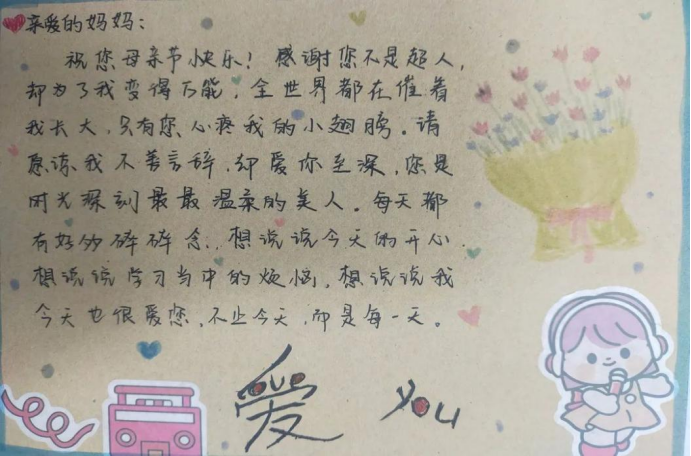 亲爱的妈妈：
祝您母亲节快乐！感谢您不是超人，
却为了我变得万能，全世界都在催着
我长大，只有您心疼我的小翅膀。请
原谅我不善言辞，却爱你至深，您是
时光深刻最最温柔的美人。每天都
有好多碎碎念，想说说今天的开心，
想说说学习当中的烦恼，想说说我
今天也很爱您，不止今天，而是每一天。
爱 you